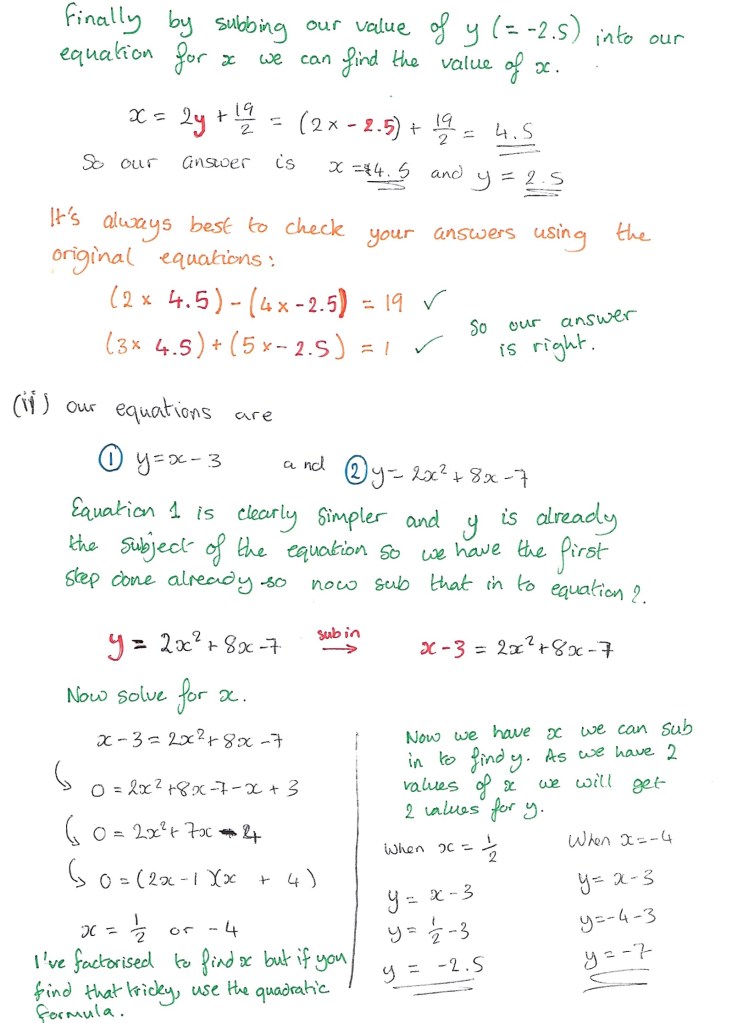 Finally by subbing our value of y (= -2.5) into our
equation for x we can find the value of x.
x = 2y + 19/2 = (2 x - 2.5) + 19/2 = 4.5
So our answer is x = 4.5 and y = 2.5
It's always best to check your answers using the
original equations:
(2 x 4.5) - (4 x - 2.5) = 19 ✓
(3 x 4.5) + (5 x - 2.5) = 1 ✓
So our answer
is right.
(ii) our equations are
① y = x - 3 and ② y = 2x² + 8x - 7
Equation 1 is clearly simpler and y is already
the subject of the equation so we have the first
step done already so now sub that in to equation 2.
y = 2x² + 8x - 7 sub in → x - 3 = 2x² + 8x - 7
Now solve for x.
x - 3 = 2x² + 8x - 7
0 = 2x² + 8x - 7 - x + 3
0 = 2x² + 7x - 4
0 = (2x - 1)(x + 4)
x = 1/2 or - 4
I've factorised to find x but if you
find that tricky, use the quadratic
formula.
Now we have x we can sub
in to find y. As we have 2
values of x we will get
2 values for y.
When x = 1/2
y = x - 3
y = 1/2 - 3
y = -2.5
When x = -4
y = x - 3
y = -4 - 3
y = -7